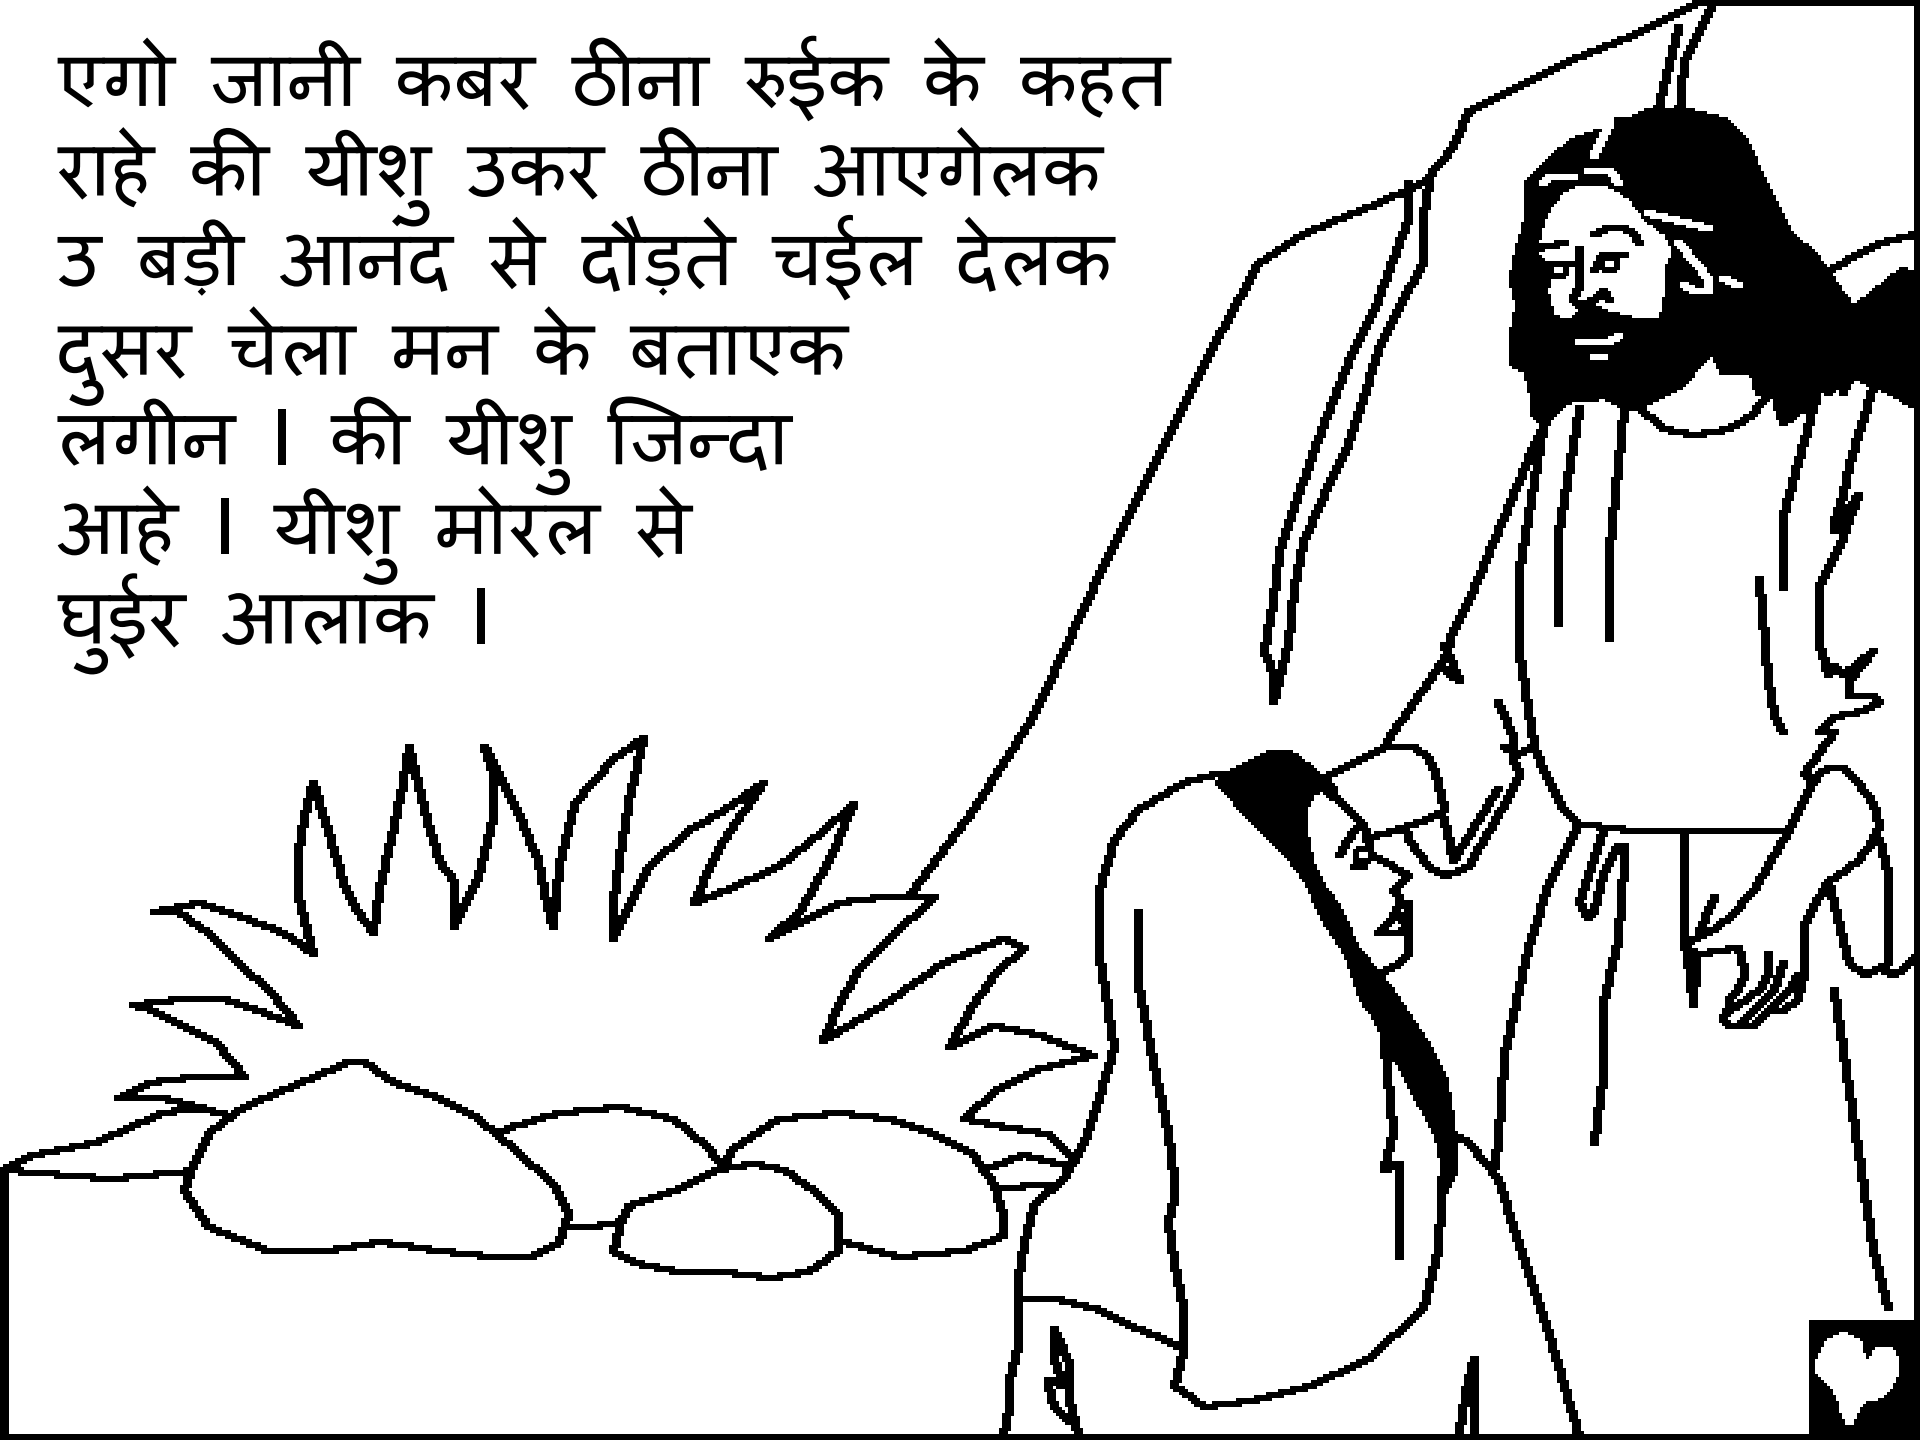 एगो जानी कबर ठीना रुईक के कहत
राहे की यीशु उकर ठीना आएगेलक
उ बड़ी आनंद से दौड़ते चईल देलक
दुसर चेला मन के बताएक
लगीन । की यीशु जिन्दा
आहे । यीशु मोरल से
घुईर आलाक ।